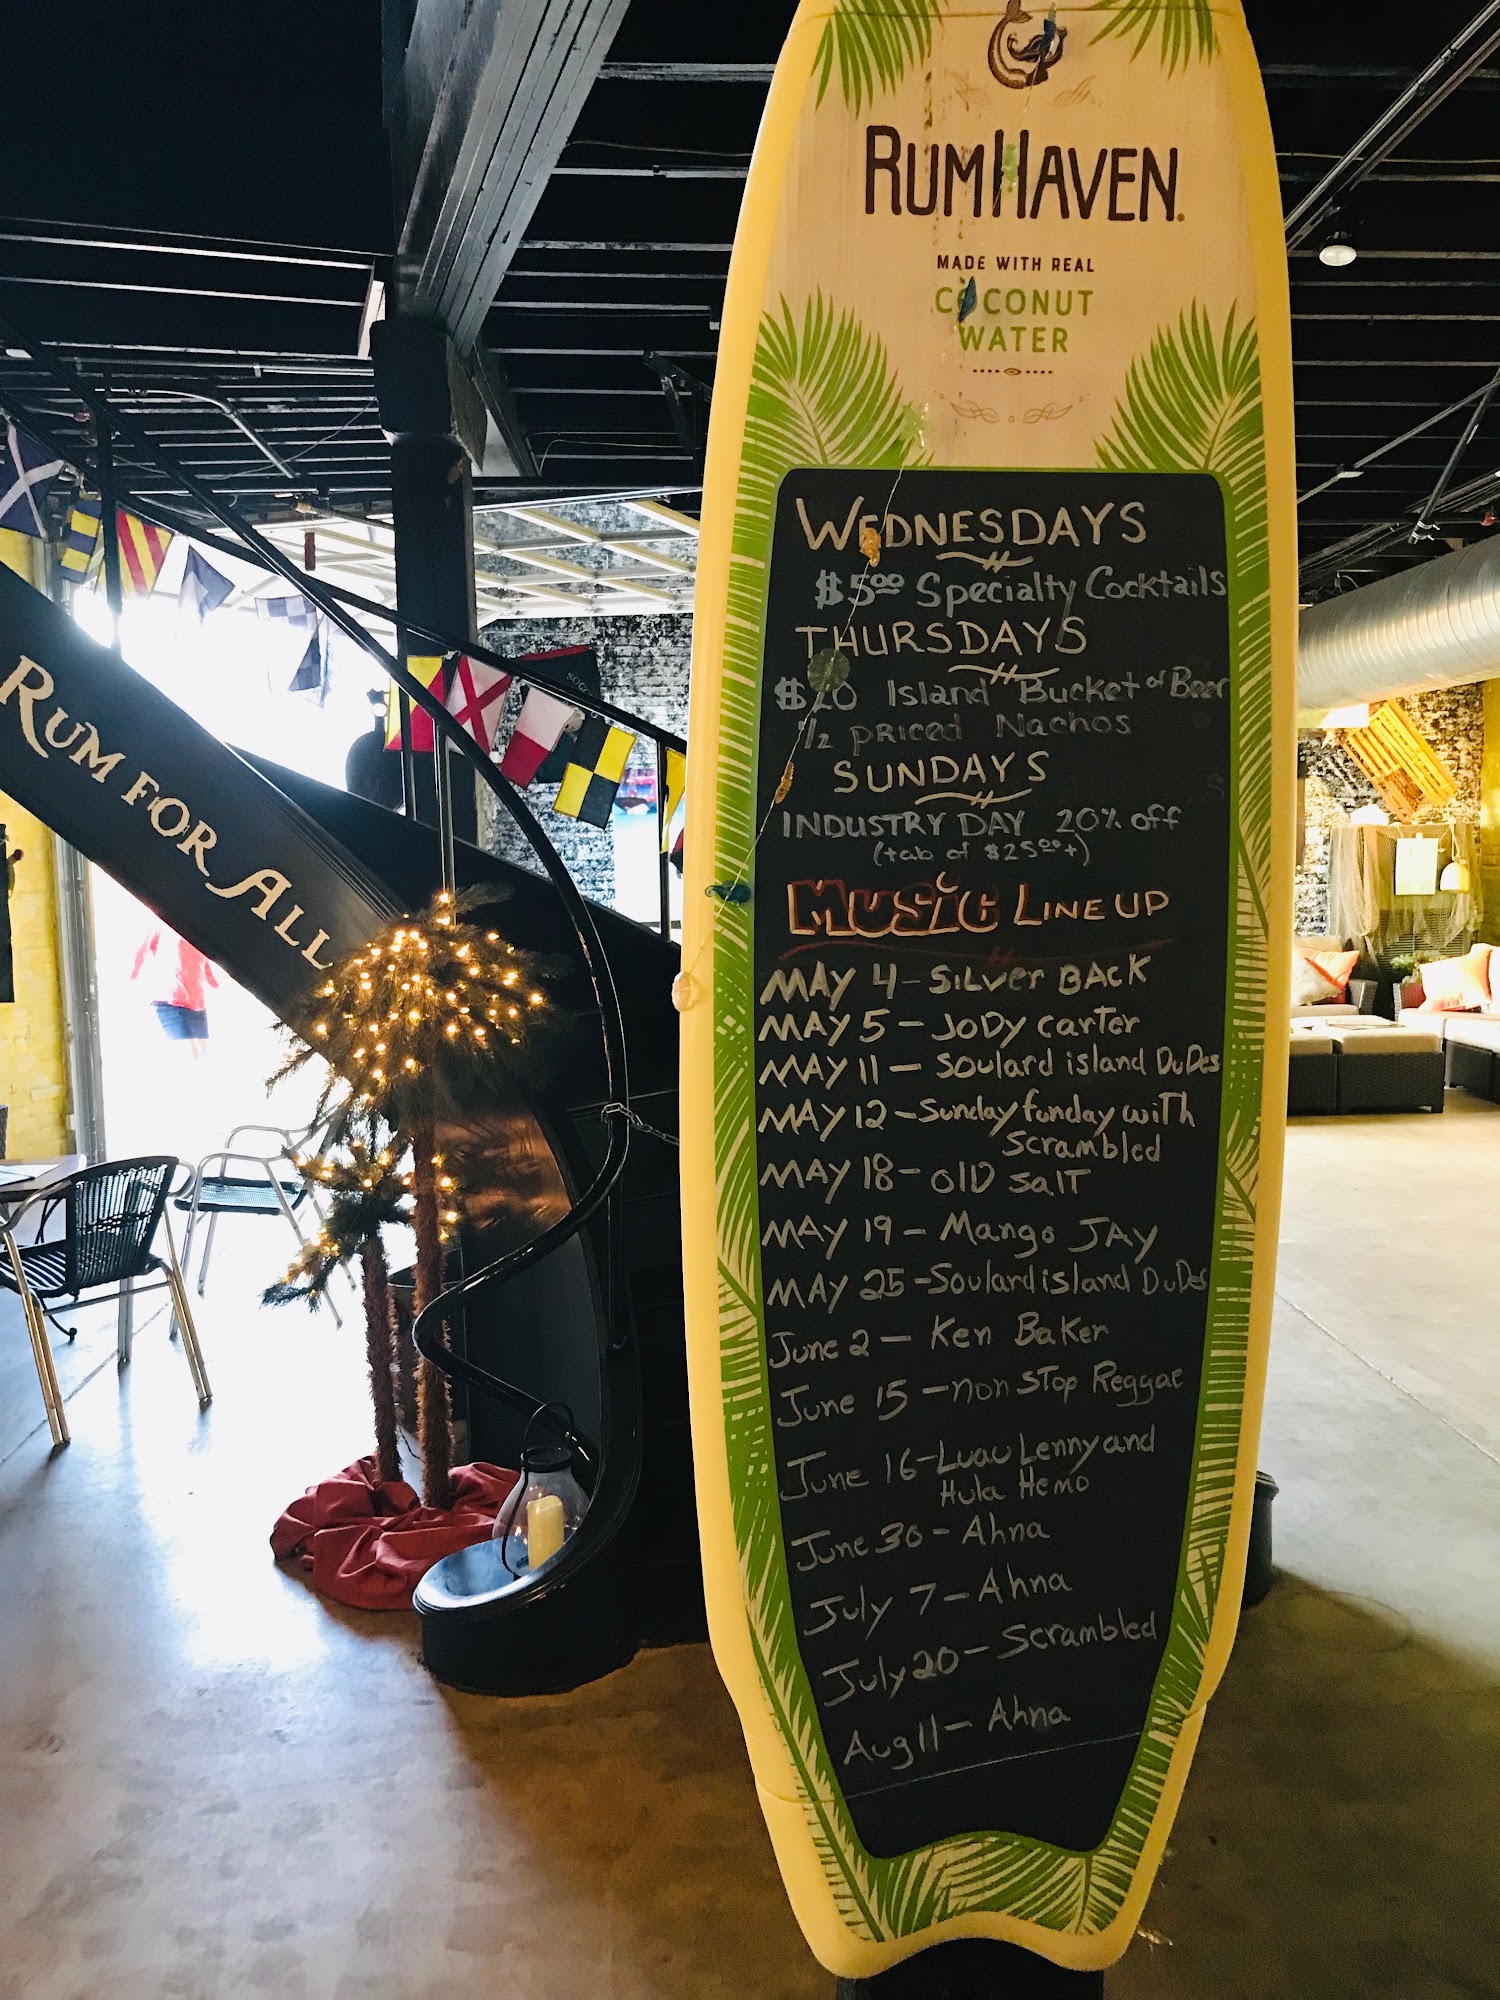 RUMHAVEN.
MADE WITH REAL
COCONUT
WATER
WEDNESDAYS
$5⁰⁰ Specialty Cocktails
THURSDAYS
$20 Island Bucket of Beer
1/2 priced Nachos
SUNDAYS
INDUSTRY DAY 20% off
(tab of $25⁰⁰+)
MUSiC LINE UP
MAY 4 - SILVer BACK
MAY 5 - JODY carter
MAY 11 - Soulard island DuDes
MAY 12 - Sunday funday with
Scrambled
MAY 18 - OLD SALT
MAY 19 - Mango JAY
MAY 25 - Soulard island DuDes
June 2 - Ken Baker
June 15 - non STop Reggae
June 16 - Luau Lenny and
Hula Hemo
June 30 - Ahna
July 7 - Ahna
July 20 - Scrambled
Aug 11 - Ahna
RUM FOR ALL